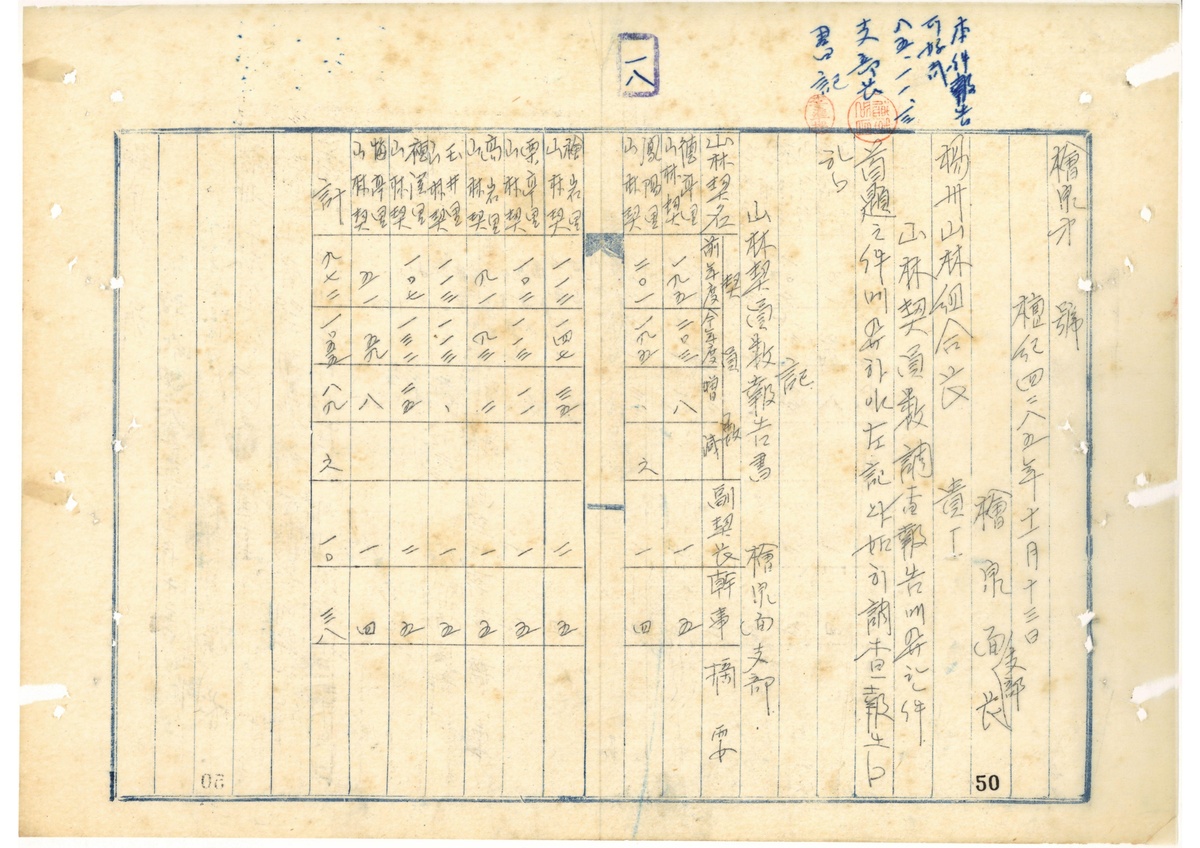 本件報告
八五、一一、三
支部長
書記
一八
檜泉才 號
檀紀四二八五年十一月十三日
檜泉面支部長
楊州山林組合長 貴下
山林契員數調査報告에關한件
首題之件에關하야左記와如히調査報告
함
記
山林契員數報告書 檜泉面支部
山林契名 契員數 前年度 今年度 增 減 副契長 幹事 摘要
德亭里山林契 一九五 二〇三 八 一 五
鳳陽里山林契 二〇一 一九五 、 六 一 四
檜岩里山林契 一一二 一四七 三五 二 五
栗亭里山林契 一〇二 一一三 一一 一 五
高岩里山林契 九一 九三 二 一 五
玉井里山林契 一一三 一一三 、 一 五
山林契 一〇七 一三二 二五 二 五
山林契 五一 五九 八 一 四
計 九七二 一〇五五 八九 六 一〇 三八
50